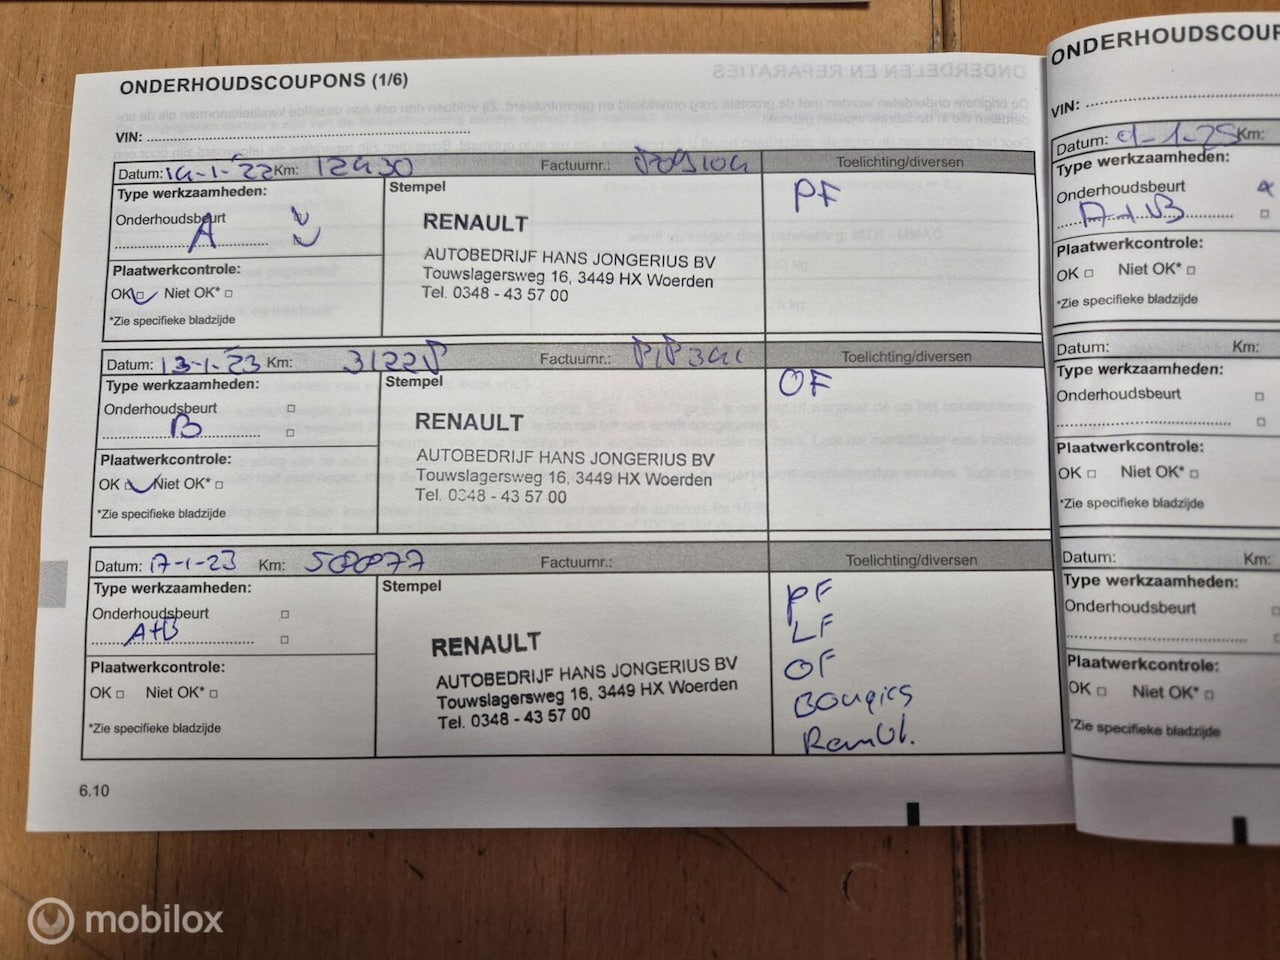 ONDERHOUDSCOUPONS (1/6)
VIN:
Datum: 14-1-22 Km: 12430 Factuurnr.: Toelichting/diversen
Type werkzaamheden: Stempel PF
Onderhoudsbeurt
A
RENAULT
AUTOBEDRIJF HANS JONGERIUS BV
Touwslagersweg 16, 3449 HX Woerden
Tel. 0348 - 43 57 00
Plaatwerkcontrole:
OK Niet OK*
*Zie specifieke bladzijde
Datum: 13-1-23 Km: Factuurnr.: Toelichting/diversen
Type werkzaamheden: Stempel OF
Onderhoudsbeurt
B
RENAULT
AUTOBEDRIJF HANS JONGERIUS BV
Touwslagersweg 16, 3449 HX Woerden
Tel. 0348 - 43 57 00
Plaatwerkcontrole:
OK Niet OK*
*Zie specifieke bladzijde
Datum: 17-1-23 Km: Factuurnr.: Toelichting/diversen
Type werkzaamheden: Stempel
Onderhoudsbeurt
A+B
RENAULT
AUTOBEDRIJF HANS JONGERIUS BV
Touwslagersweg 16, 3449 HX Woerden
Tel. 0348 - 43 57 00
PF
LF
OF
Bougies
Remvl.
Plaatwerkcontrole:
OK Niet OK*
*Zie specifieke bladzijde
6.10
VIN:
Datum: Km:
Type werkzaamheden:
Onderhoudsbeurt
A+B
Plaatwerkcontrole:
OK Niet OK*
*Zie specifieke bladzijde
Datum: Km:
Type werkzaamheden:
Onderhoudsbeurt
Plaatwerkcontrole:
OK Niet OK*
*Zie specifieke bladzijde
Datum: Km:
Type werkzaamheden:
Onderhoudsbeurt
Plaatwerkcontrole:
OK Niet OK*
*Zie specifieke bladzijde
mobilox